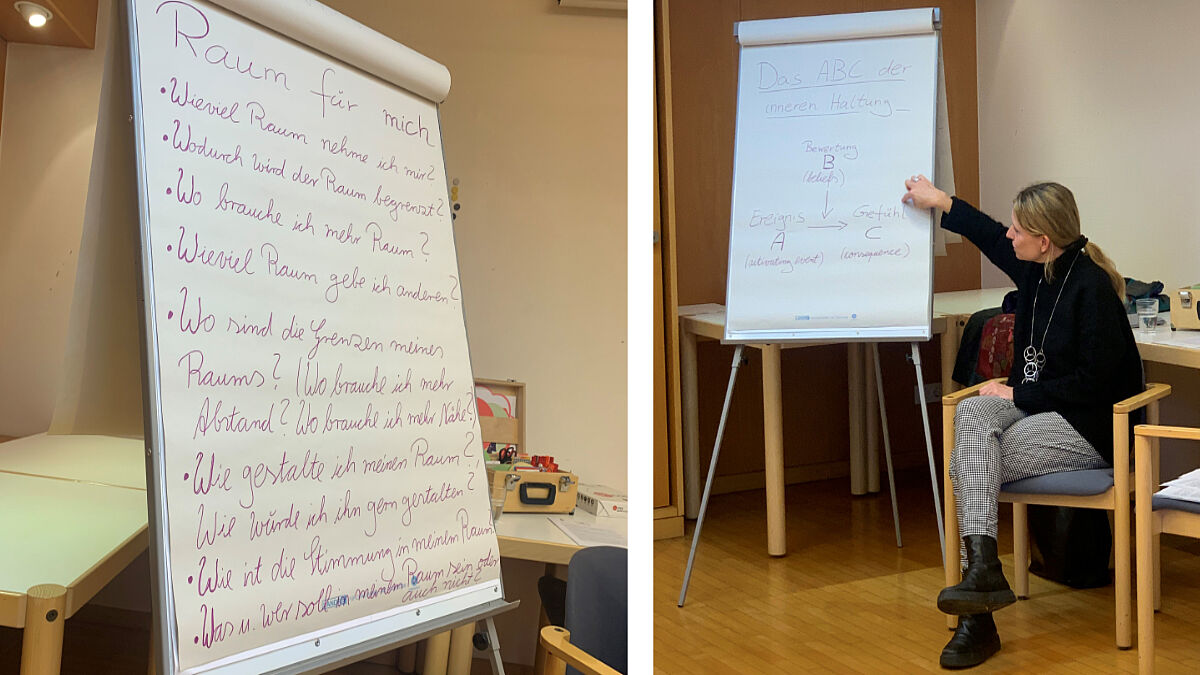 Raum für mich
• Wieviel Raum nehme ich mir?
• Wodurch wird der Raum begrenzt?
• Wo brauche ich mehr Raum?
• Wieviel Raum gebe ich anderen?
• Wo sind die Grenzen meines
Raums? (Wo brauche ich mehr
Abstand? Wo brauche ich mehr Nähe?)
• Wie gestalte ich meinen Raum?
Wie würde ich ihn gern gestalten?
• Wie ist die Stimmung in meinem Raum
• Was u. wer soll in meinem Raum sein oder
auch nicht?
Das ABC der
inneren Haltung
Bewertung
B
(beliefs)
Ereignis → Gefühl
A C
(activating event) (consequence)